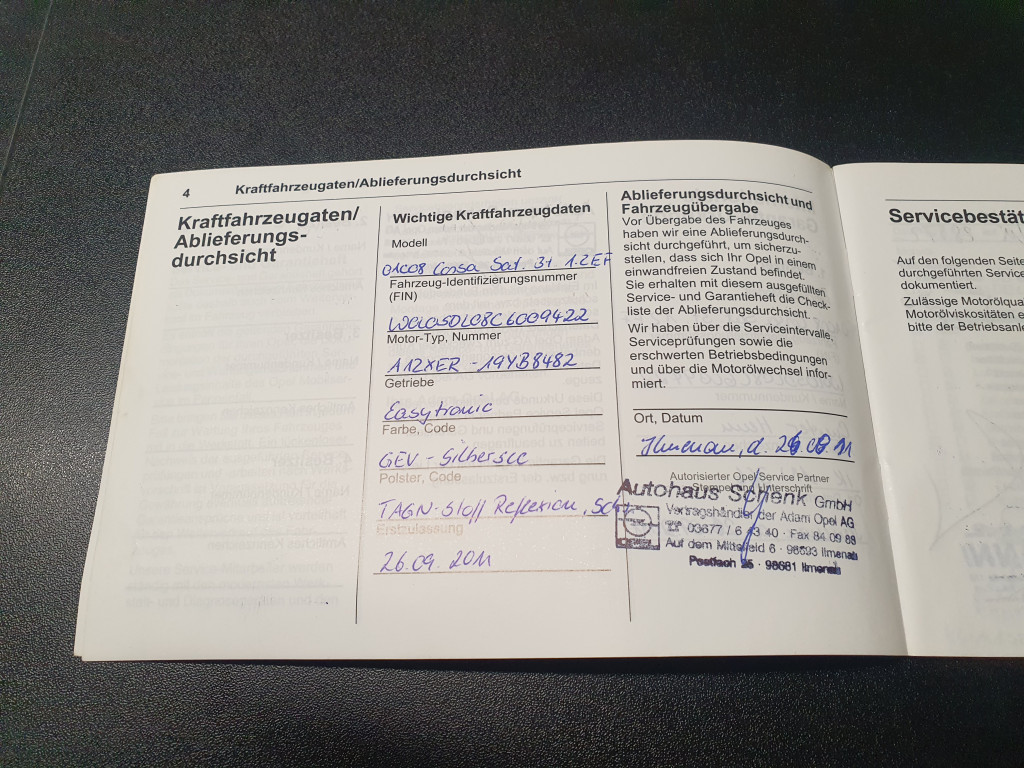 4
Kraftfahrzeugaten/Ablieferungsdurchsicht
Kraftfahrzeugaten/
Ablieferungs-
durchsicht
Wichtige Kraftfahrzeugdaten
Modell
01C08 Corsa Sat. 3t 1.2EF
Fahrzeug-Identifizierungsnummer
(FIN)
W0L0SDL08C6009422
Motor-Typ, Nummer
A12XER - 19YB8482
Getriebe
Easytronic
Farbe, Code
GEV - Silbersee
Polster, Code
TAGN-Stoff Reflexion, Sch
Erstzulassung
26.09.2011
Ablieferungsdurchsicht und
Fahrzeugübergabe
Vor Übergabe des Fahrzeuges
haben wir eine Ablieferungsdurch-
sicht durchgeführt, um sicherzu-
stellen, dass sich Ihr Opel in einem
einwandfreien Zustand befindet.
Sie erhalten mit diesem ausgefüllten
Service- und Garantieheft die Check-
liste der Ablieferungsdurchsicht.
Wir haben über die Serviceintervalle,
Serviceprüfungen sowie die
erschwerten Betriebsbedingungen
und über die Motorölwechsel infor-
miert.
Ort, Datum
Ilmenau, d.
Autorisierter Opel Service Partner
Stempel und Unterschrift
Autohaus Schenk GmbH
Vertragshändler der Adam Opel AG
☎ 03677 / 6 43 40 · Fax 84 09 88
Auf dem Mittelfeld 6 · 98693 Ilmenau
Postfach · 98681 Ilmenau
Servicebestät
Auf den folgenden Seite
durchgeführten Service
dokumentiert.
Zulässige Motorölqua
Motorölviskositäten e
bitte der Betriebsanle